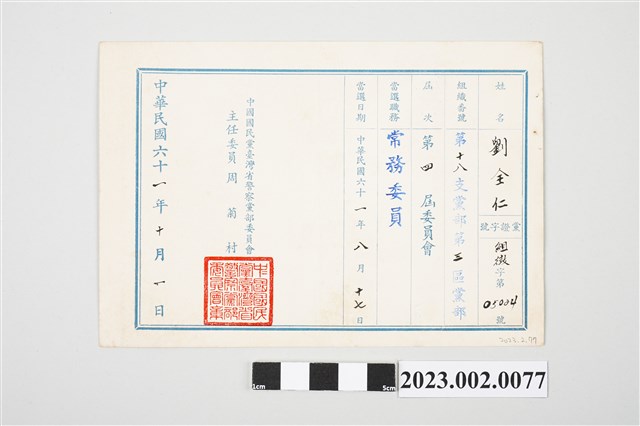 姓名 劉全仁 黨證字號 組徵字第05004號
組織番號 第十八支黨部第三區黨部
屆次 第四屆委員會
當選職務 常務委員
當選日期 中華民國六十一年八月十七日
中國國民黨臺灣省警察黨部委員會
主任委員 周菊村
中華民國六十一年十月一日
2023.2.77
1cm
5cm
2023.002.0077